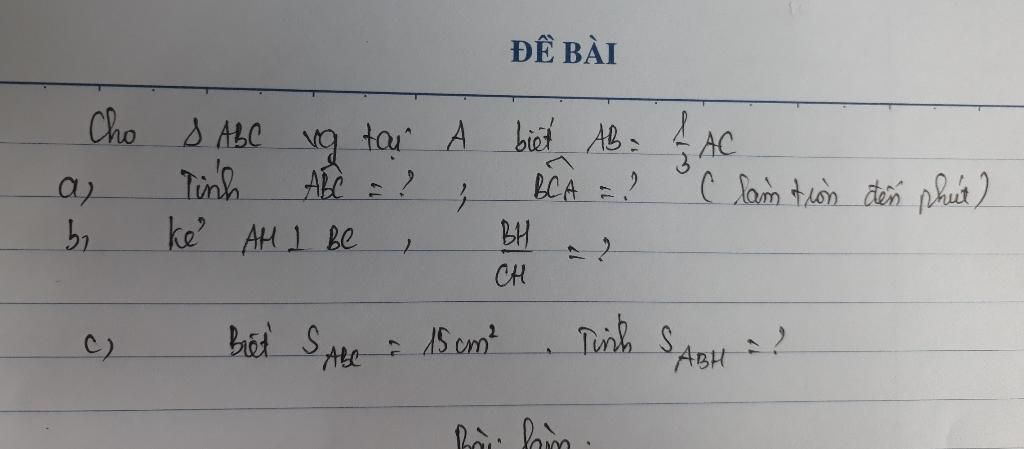 ĐỀ BÀI
Cho Δ ABC vg tại A biết AB = 1/3 AC
a, Tính \widehat{ABC} = ? ; \widehat{BCA} = ? ( làm tròn đến phút)
b, kẻ AH ⊥ BC , BH/CH = ?
c, Biết S_ABC = 15cm² . Tính S_ABH = ?
Bài làm.